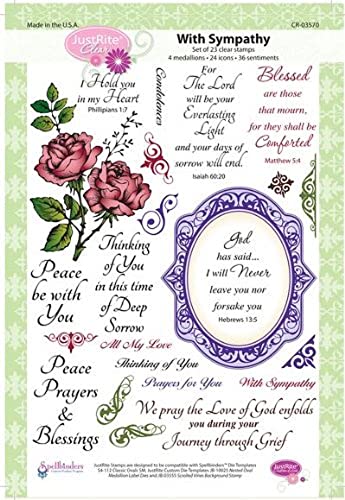 Made in the U.S.A.
CR-03570
JustRite
Clear
With Sympathy
Set of 23 clear stamps
4 medallions • 24 icons • 36 sentiments
I Hold you
in my Heart
Phillipians 1:7
Condolences
For
The Lord
will be your
Everlasting
Light
and your days of
sorrow will end.
Isaiah 60:20
Blessed
are those
that mourn,
for they shall be
Comforted
Matthew 5:4
Thinking
of You
in this time
of Deep
Sorrow
God
has said...
I will Never
leave you nor
forsake you
Hebrews 13:5
Peace
be with
You
All My Love
Thinking of You
Peace
Prayers
&
Blessings
Prayers for You
With Sympathy
We pray the Love of God enfolds
you during your
Journey through Grief
Spellbinders
JustRite Stamps are designed to be compatible with Spellbinders™ Die Templates
S4-112 Classic Ovals SM, JustRite Custom Die Templates JB-10025 Nested Oval
Medallion Label Dies and JB-03555 Scrolled Vines Background Stamp